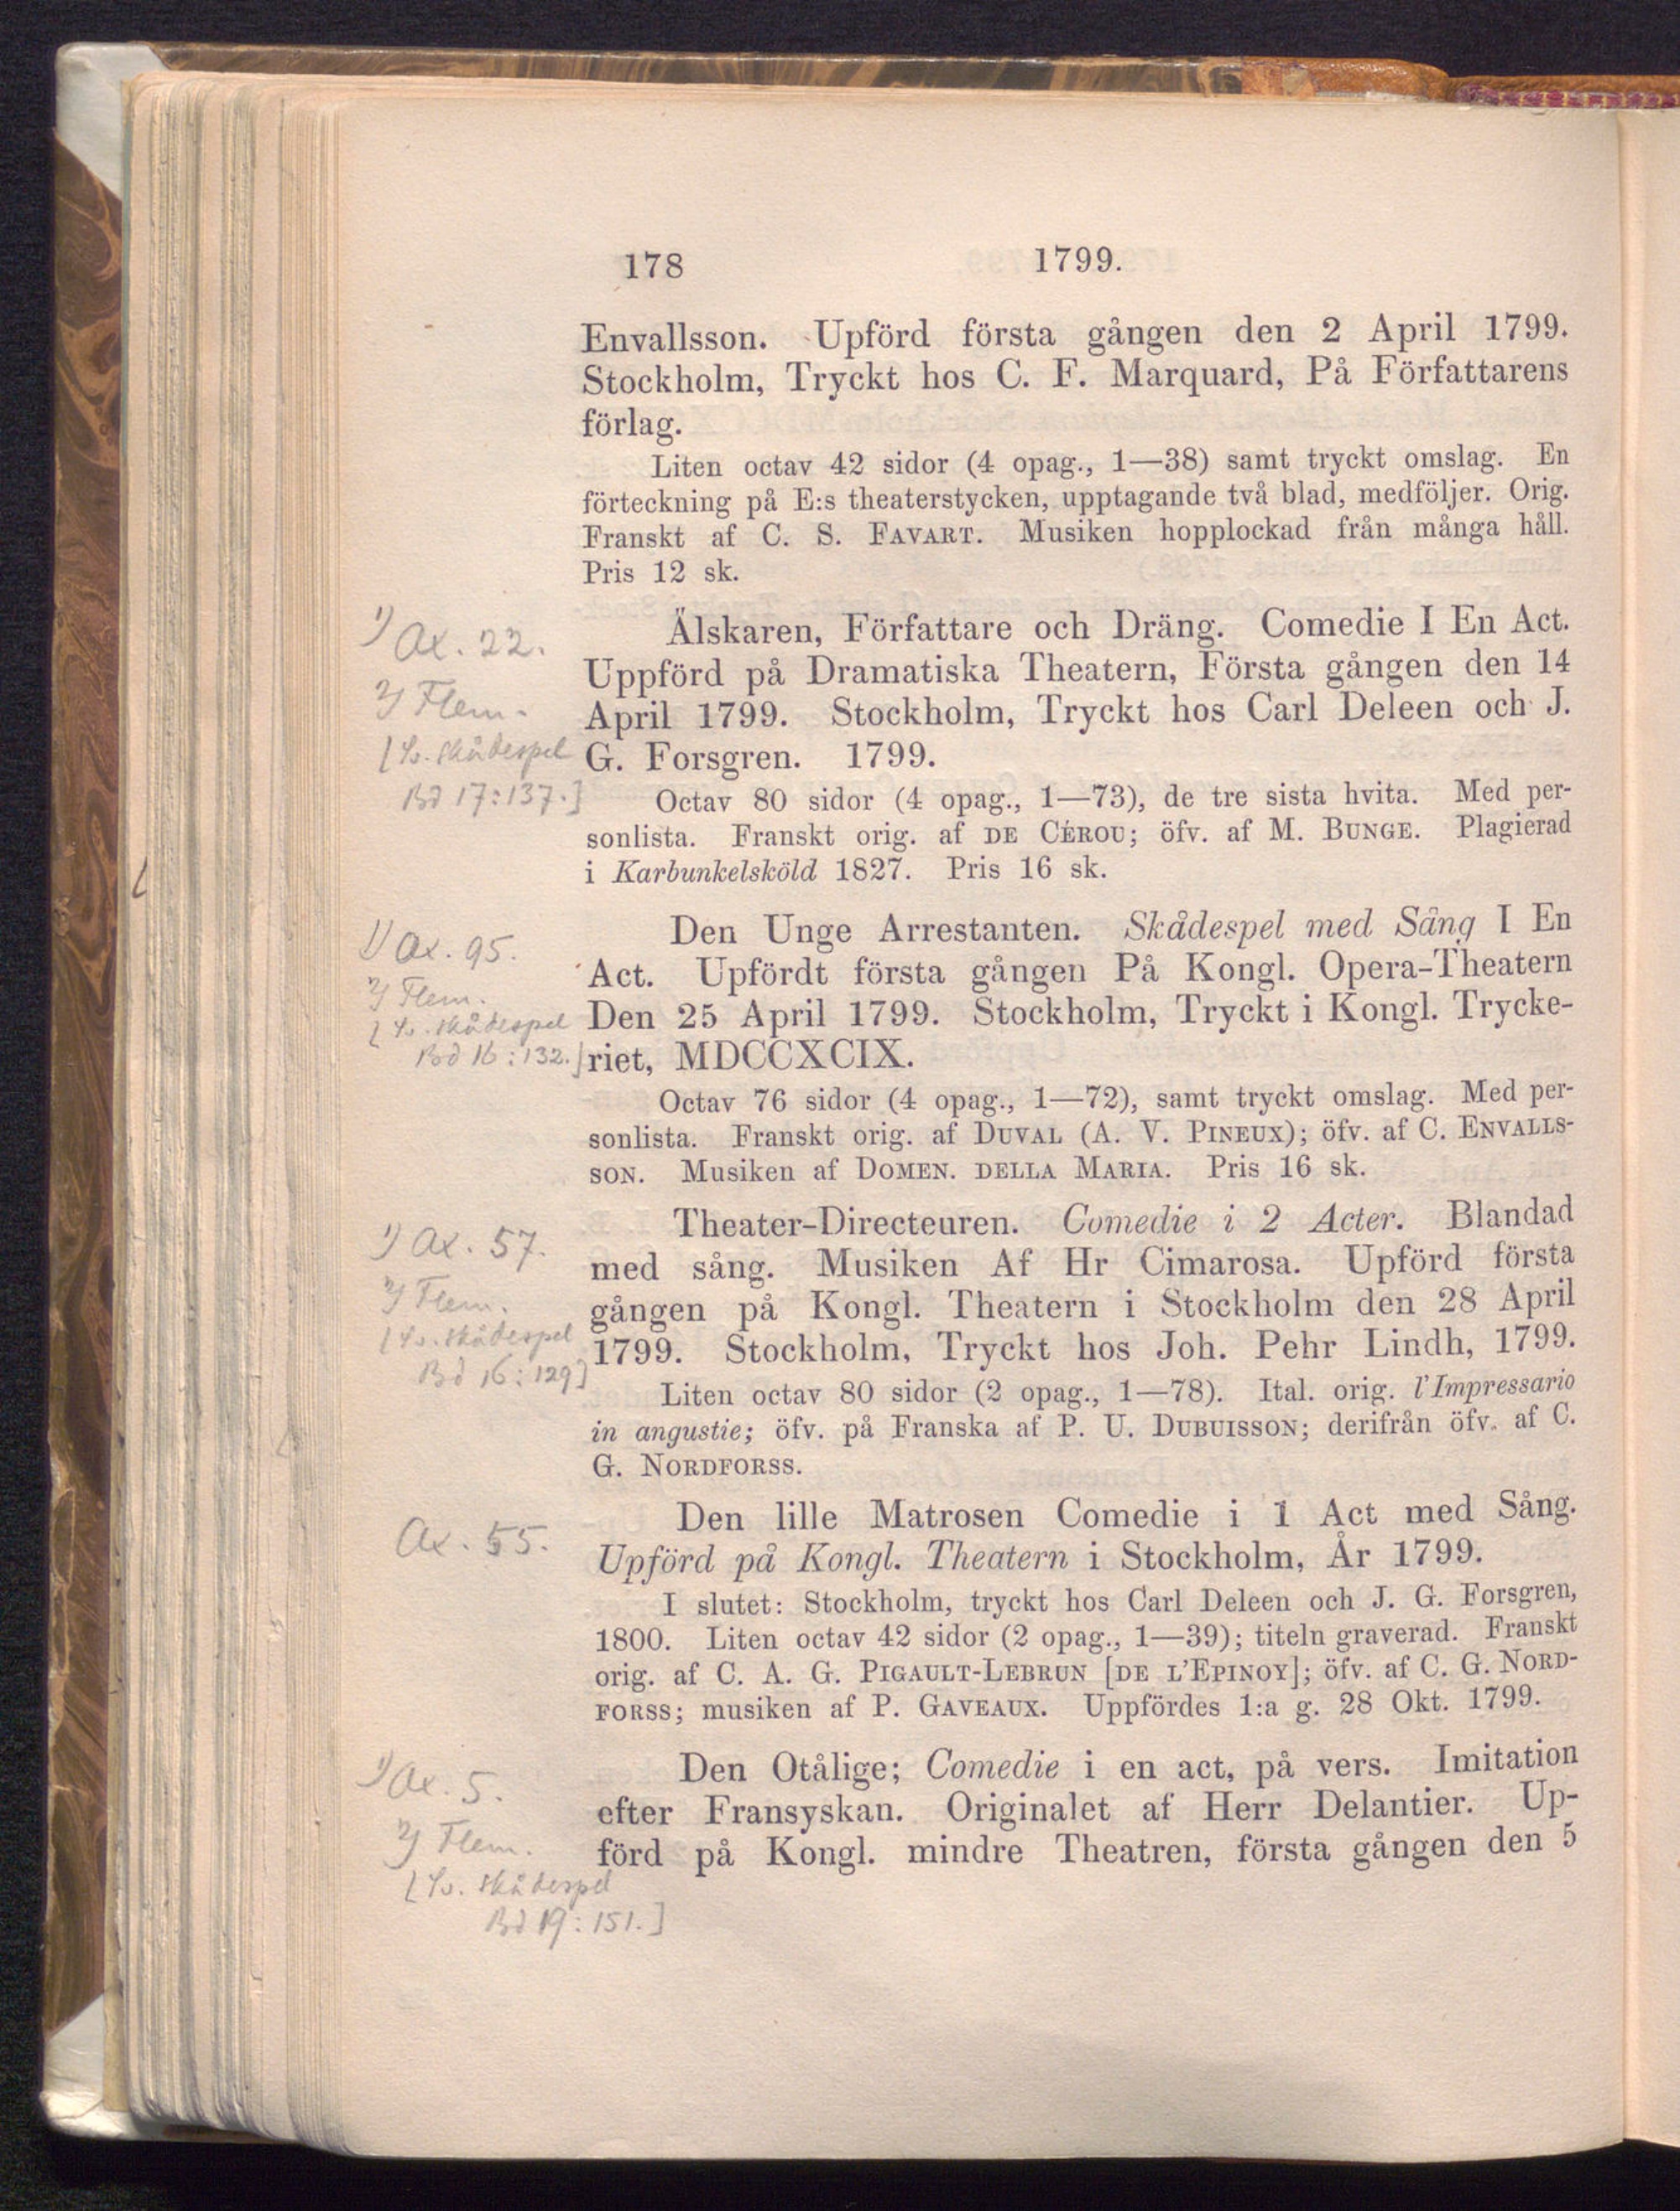 178 1799.
Envallsson. Upförd första gången den 2 April 1799.
Stockholm, Tryckt hos C. F. Marquard, På Författarens
förlag.
Liten octav 42 sidor (4 opag., 1—38) samt tryckt omslag. En
förteckning på E:s theaterstycken, upptagande två blad, medföljer. Orig.
Franskt af C. S. FAVART. Musiken hopplockad från många håll.
Pris 12 sk.
1) Ax. 22.
2) Flem.
[Sv. skådespel
Bd 17:137.]
Älskaren, Författare och Dräng. Comedie I En Act.
Uppförd på Dramatiska Theatern, Första gången den 14
April 1799. Stockholm, Tryckt hos Carl Deleen och J.
G. Forsgren. 1799.
Octav 80 sidor (4 opag., 1—73), de tre sista hvita. Med per-
sonlista. Franskt orig. af DE CÉROU; öfv. af M. BUNGE. Plagierad
i Karbunkelsköld 1827. Pris 16 sk.
1) Ax. 95.
2) Flem.
[Sv. skådespel
Bd 16:132.]
Den Unge Arrestanten. Skådespel med Sång I En
Act. Upfördt första gången På Kongl. Opera-Theatern
Den 25 April 1799. Stockholm, Tryckt i Kongl. Trycke-
riet, MDCCXCIX.
Octav 76 sidor (4 opag., 1—72), samt tryckt omslag. Med per-
sonlista. Franskt orig. af DUVAL (A. V. PINEUX); öfv. af C. ENVALLS-
SON. Musiken af DOMEN. DELLA MARIA. Pris 16 sk.
1) Ax. 57.
2) Flem.
[Sv. skådespel
Bd 16:129]
Theater-Directeuren. Comedie i 2 Acter. Blandad
med sång. Musiken Af Hr Cimarosa. Upförd första
gången på Kongl. Theatern i Stockholm den 28 April
1799. Stockholm, Tryckt hos Joh. Pehr Lindh, 1799.
Liten octav 80 sidor (2 opag., 1—78). Ital. orig. l'Impressario
in angustie; öfv. på Franska af P. U. DUBUISSON; derifrån öfv. af C.
G. NORDFORSS.
Ax. 55.
Den lille Matrosen Comedie i 1 Act med Sång.
Upförd på Kongl. Theatern i Stockholm, År 1799.
I slutet: Stockholm, tryckt hos Carl Deleen och J. G. Forsgren,
1800. Liten octav 42 sidor (2 opag., 1—39); titeln graverad. Franskt
orig. af C. A. G. PIGAULT-LEBRUN [DE L'EPINOY]; öfv. af C. G. NORD-
FORSS; musiken af P. GAVEAUX. Uppfördes 1:a g. 28 Okt. 1799.
1) Ax. 5.
2) Flem.
[Sv. skådespel
Bd 19:151.]
Den Otålige; Comedie i en act, på vers. Imitation
efter Fransyskan. Originalet af Herr Delantier. Up-
förd på Kongl. mindre Theatren, första gången den 5